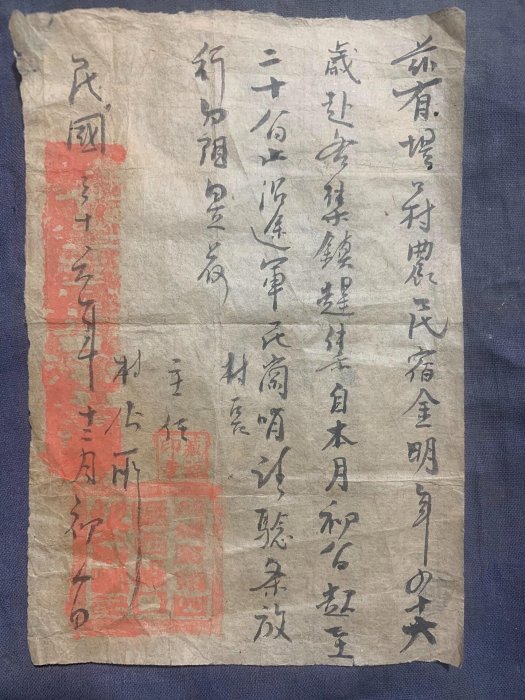 茲有村農民宿金明年四十六
歲赴各集鎮趕集自本月初八日起至
二十八日止沿途軍民崗哨請驗条放
行勿阻是荷
村長
主任
村公所
民國三十六年十二月初八日